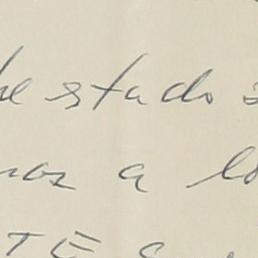 he estado
nos a lo
TE